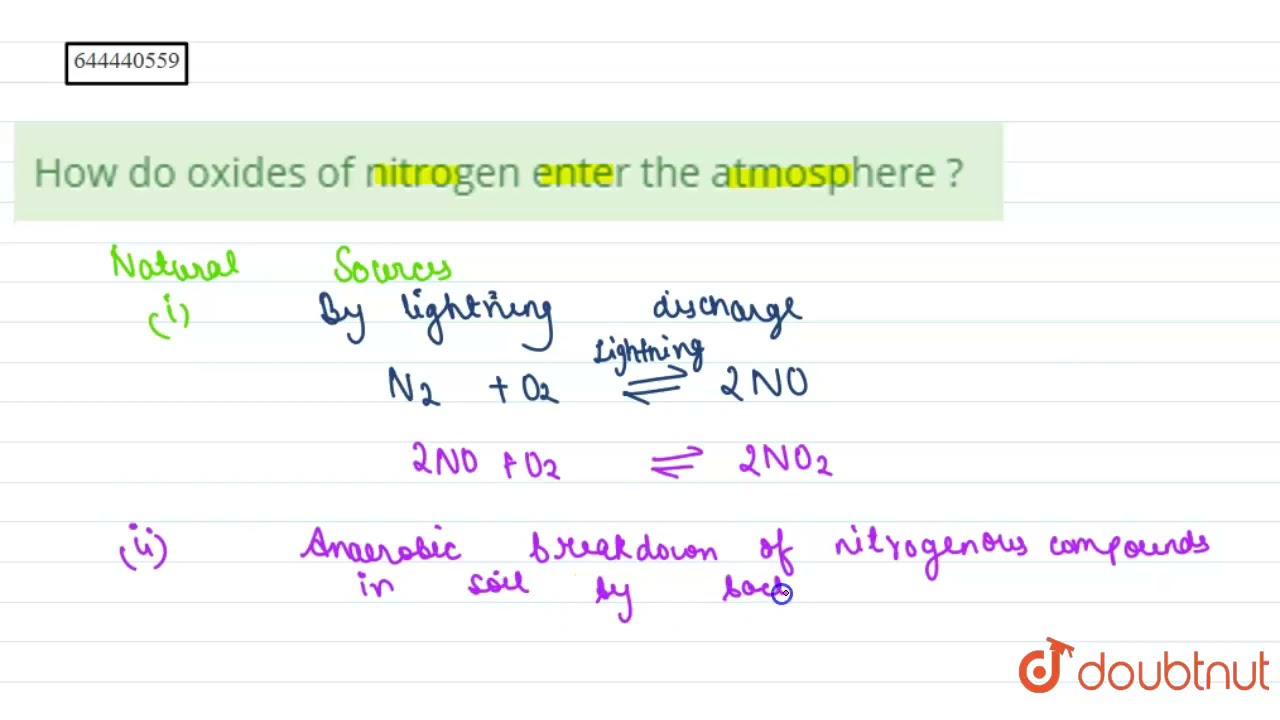 644440559
How do oxides of nitrogen enter the atmosphere ?
Natural Sources
(i) By lightning discharge
Lightning
N₂ + O₂ ⇌ 2NO
2NO + O₂ ⇌ 2NO₂
(ii) Anaerobic breakdown of nitrogenous compounds
in soil by bact
doubtnut